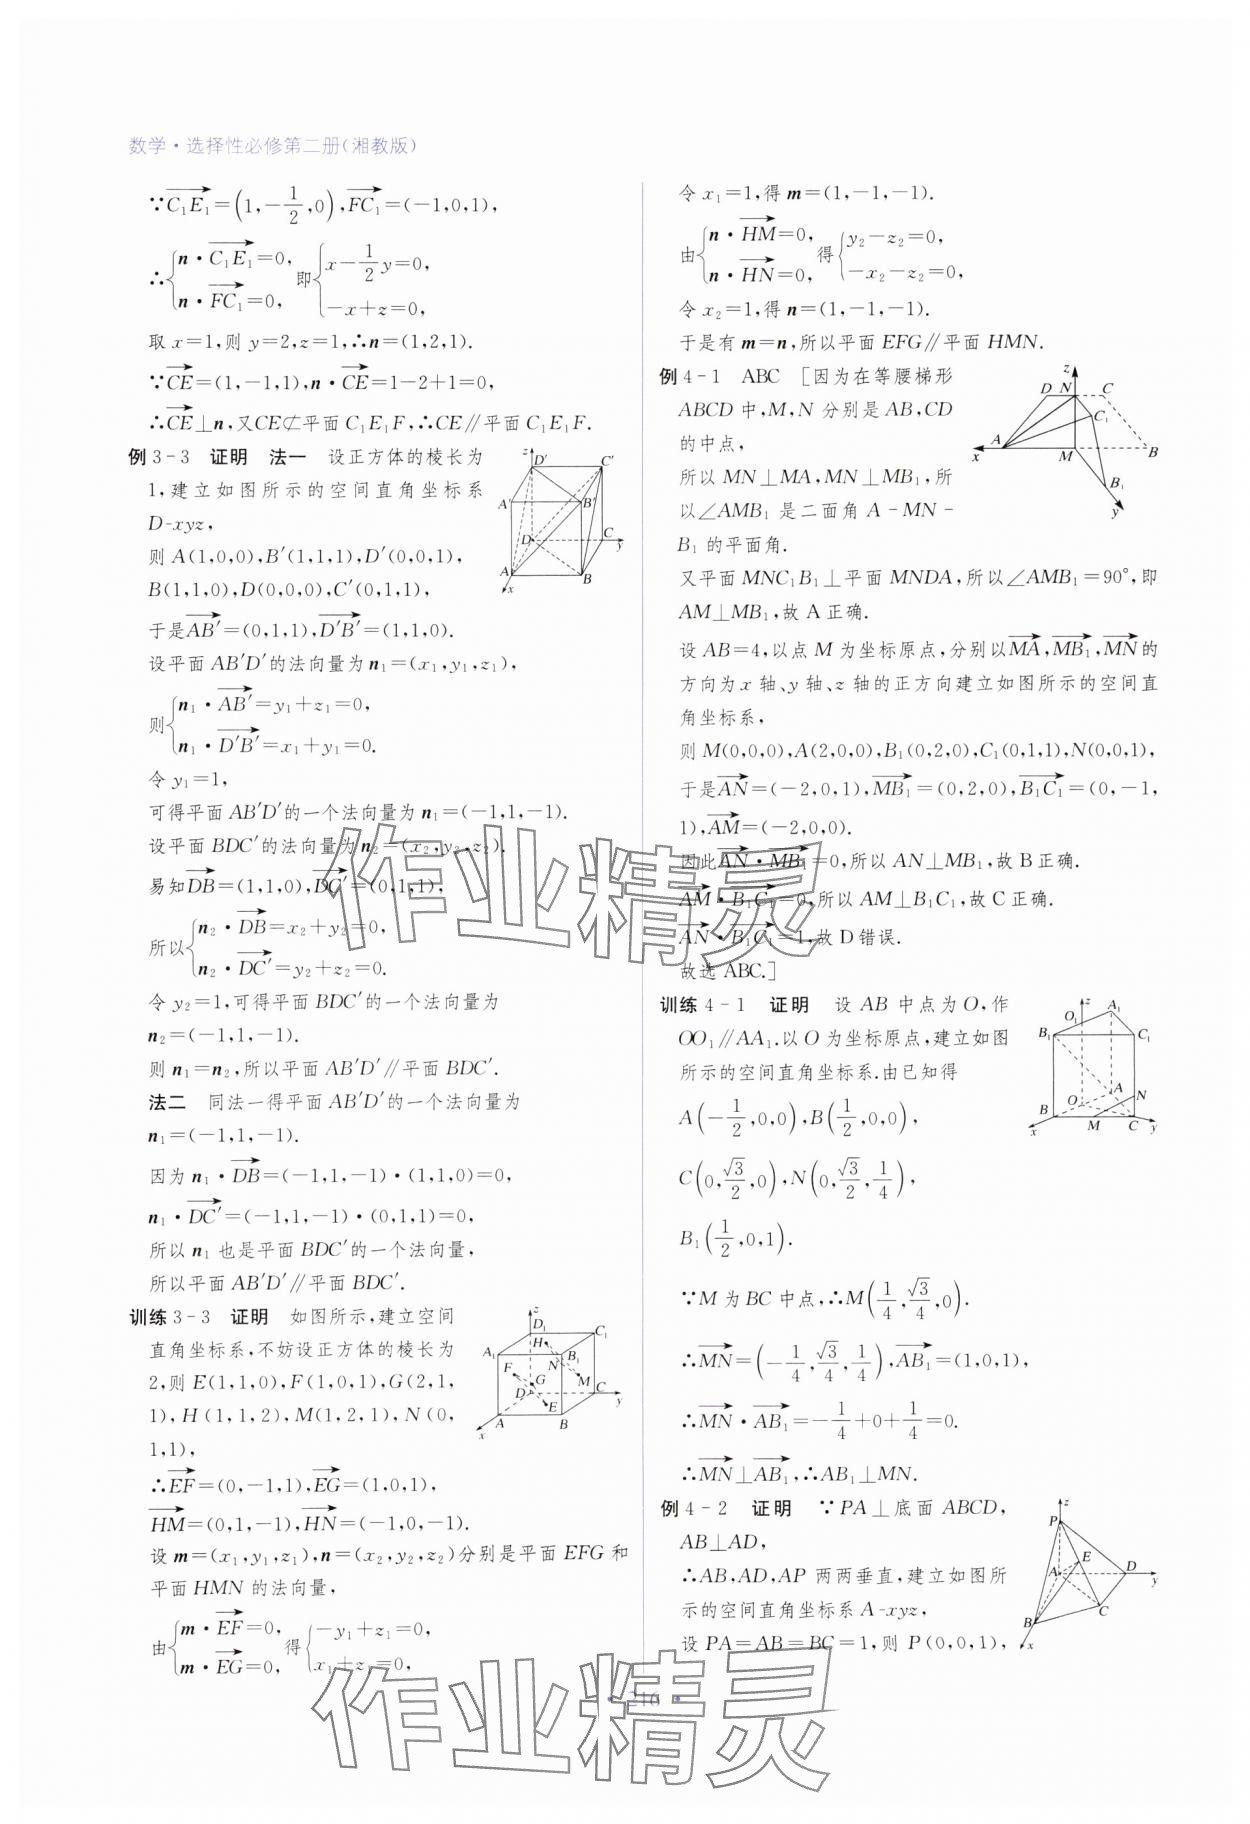 数学·选择性必修第二册(湘教版)
∵$\overrightarrow{C_1E_1}=\left(1,-\frac{1}{2},0\right),\overrightarrow{FC_1}=(-1,0,1)$,
∴$\begin{cases}n·\overrightarrow{C_1E_1}=0,\\n·\overrightarrow{FC_1}=0,\end{cases}$即$\begin{cases}x-\frac{1}{2}y=0,\\-x+z=0,\end{cases}$
取 x=1,则 y=2,z=1,∴n=(1,2,1).
∵$\overrightarrow{CE}$=(1,-1,1),n·$\overrightarrow{CE}$=1-2+1=0,
∴$\overrightarrow{CE}$⊥n,又CE⊄平面 C₁E₁F,∴CE∥平面 C₁E₁F.
例 3-3 证明 法一 设正方体的棱长为
1,建立如图所示的空间直角坐标系
D-xyz,
则 A(1,0,0),B′(1,1,1),D′(0,0,1),
B(1,1,0),D(0,0,0),C′(0,1,1),
于是$\overrightarrow{AB′}$=(0,1,1),$\overrightarrow{D′B′}$=(1,1,0).
设平面 AB′D′的法向量为 n₁=(x₁,y₁,z₁),
则$\begin{cases}n_1·\overrightarrow{AB′}=y_1+z_1=0,\\n_1·\overrightarrow{D′B′}=x_1+y_1=0.\end{cases}$
令 y₁=1,
可得平面 AB′D′的一个法向量为 n₁=(-1,1,-1).
设平面 BDC′的法向量为 n₂=(x₂,y₂,z₂).
易知$\overrightarrow{DB}$=(1,1,0),$\overrightarrow{DC′}$=(0,1,1),
所以$\begin{cases}n_2·\overrightarrow{DB}=x_2+y_2=0,\\n_2·\overrightarrow{DC′}=y_2+z_2=0.\end{cases}$
令 y₂=1,可得平面 BDC′的一个法向量为
n₂=(-1,1,-1).
则 n₁=n₂,所以平面 AB′D′∥平面 BDC′.
法二 同法一得平面 AB′D′的一个法向量为
n₁=(-1,1,-1).
因为 n₁·$\overrightarrow{DB}$=(-1,1,-1)·(1,1,0)=0,
n₁·$\overrightarrow{DC′}$=(-1,1,-1)·(0,1,1)=0,
所以 n₁ 也是平面 BDC′的一个法向量,
所以平面 AB′D′∥平面 BDC′.
训练 3-3 证明 如图所示,建立空间
直角坐标系,不妨设正方体的棱长为
2,则 E(1,1,0),F(1,0,1),G(2,1,
1),H(1,1,2),M(1,2,1),N(0,
1,1),
∴$\overrightarrow{EF}$=(0,-1,1),$\overrightarrow{EG}$=(1,0,1),
$\overrightarrow{HM}$=(0,1,-1),$\overrightarrow{HN}$=(-1,0,-1).
设 m=(x₁,y₁,z₁),n=(x₂,y₂,z₂)分别是平面 EFG 和
平面 HMN 的法向量,
由$\begin{cases}m·\overrightarrow{EF}=0,\\m·\overrightarrow{EG}=0,\end{cases}$得$\begin{cases}-y_1+z_1=0,\\x_1+z_1=0,\end{cases}$
令 x₁=1,得 m=(1,-1,-1).
由$\begin{cases}n·\overrightarrow{HM}=0,\\n·\overrightarrow{HN}=0,\end{cases}$得$\begin{cases}y_2-z_2=0,\\-x_2-z_2=0,\end{cases}$
令 x₂=1,得 n=(1,-1,-1).
于是有 m=n,所以平面 EFG∥平面 HMN.
例 4-1 ABC [因为在等腰梯形
ABCD 中,M,N 分别是 AB,CD
的中点,
所以 MN⊥MA,MN⊥MB₁,所
以∠AMB₁ 是二面角 A-MN-
B₁ 的平面角.
又平面 MNC₁B₁⊥平面 MNDA,所以∠AMB₁=90°,即
AM⊥MB₁,故 A 正确.
设 AB=4,以点 M 为坐标原点,分别以$\overrightarrow{MA},\overrightarrow{MB_1},\overrightarrow{MN}$的
方向为 x 轴、y 轴、z 轴的正方向建立如图所示的空间直
角坐标系,
则 M(0,0,0),A(2,0,0),B₁(0,2,0),C₁(0,1,1),N(0,0,1),
于是$\overrightarrow{AN}$=(-2,0,1),$\overrightarrow{MB_1}$=(0,2,0),$\overrightarrow{B_1C_1}$=(0,-1,
1),$\overrightarrow{AM}$=(-2,0,0).
因此$\overrightarrow{AN}·\overrightarrow{MB_1}$=0,所以 AN⊥MB₁,故 B 正确.
$\overrightarrow{AM}·\overrightarrow{B_1C_1}$=0,所以 AM⊥B₁C₁,故 C 正确.
$\overrightarrow{AN}·\overrightarrow{B_1C_1}$=1,故 D 错误.
故选 ABC.]
训练 4-1 证明 设 AB 中点为 O,作
OO₁∥AA₁.以 O 为坐标原点,建立如图
所示的空间直角坐标系.由已知得
$A\left(-\frac{1}{2},0,0\right),B\left(\frac{1}{2},0,0\right)$,
$C\left(0,\frac{\sqrt{3}}{2},0\right),N\left(0,\frac{\sqrt{3}}{2},\frac{1}{4}\right)$,
$B_1\left(\frac{1}{2},0,1\right)$.
∵M 为 BC 中点,∴$M\left(\frac{1}{4},\frac{\sqrt{3}}{4},0\right)$.
∴$\overrightarrow{MN}=\left(-\frac{1}{4},\frac{\sqrt{3}}{4},\frac{1}{4}\right),\overrightarrow{AB_1}=(1,0,1)$,
∴$\overrightarrow{MN}·\overrightarrow{AB_1}=-\frac{1}{4}+0+\frac{1}{4}=0$.
∴$\overrightarrow{MN}⊥\overrightarrow{AB_1}$,∴AB₁⊥MN.
例 4-2 证明 ∵PA⊥底面 ABCD,
AB⊥AD,
∴AB,AD,AP 两两垂直,建立如图所
示的空间直角坐标系 A-xyz,
设 PA=AB=BC=1,则 P(0,0,1),
·216·
作业精灵
作业精灵